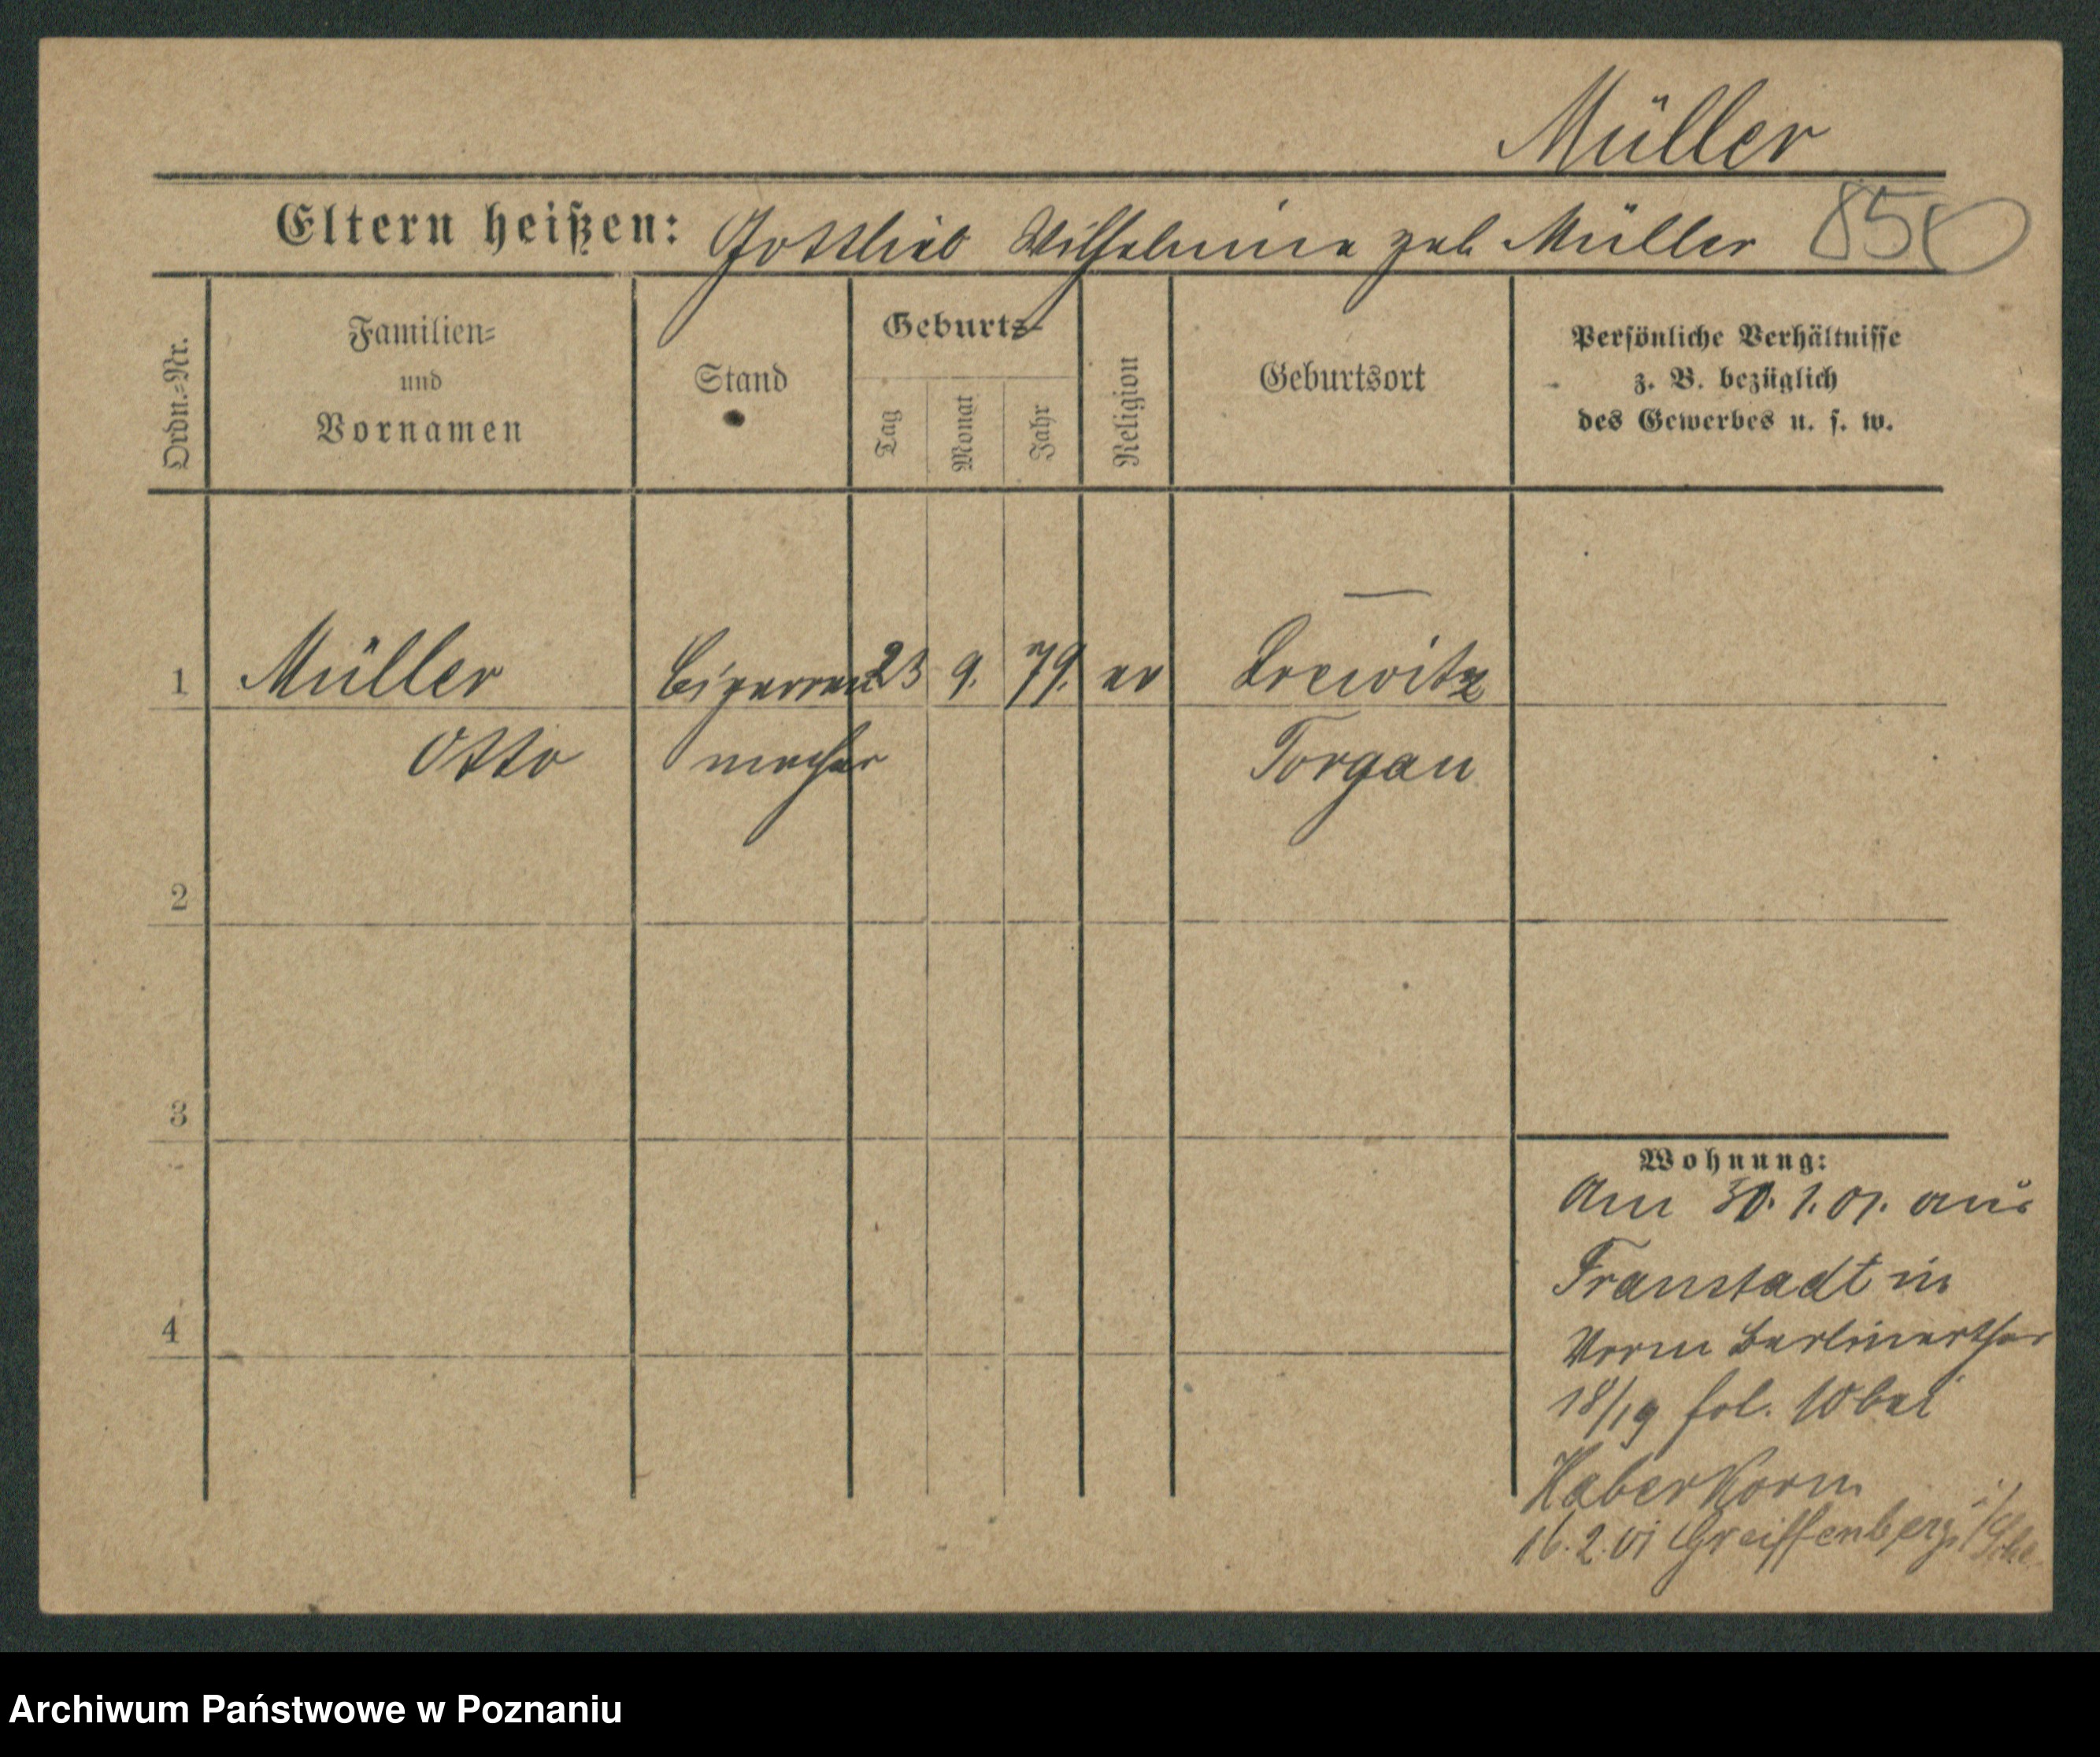 Müller
Eltern heißen: Gottlieb Wilhelmine geb Müller 850
Ordn.=Nr.
Familien=
und
Vornamen
Stand
Geburts=
Tag
Monat
Jahr
Religion
Geburtsort
Persönliche Verhältnisse
z. B. bezüglich
des Gewerbes u. s. w.
1 Müller Cigarren 23 9. 79. ev Drewitz
Otto macher Torgau
2
3
4
Wohnung:
Am 30. 1. 01. aus
Fraustadt in
Berlinerthor
18/19 fol. 10 bei
Haberkorn
16. 2. 01 Greiffenberg i/Schl.
Archiwum Państwowe w Poznaniu